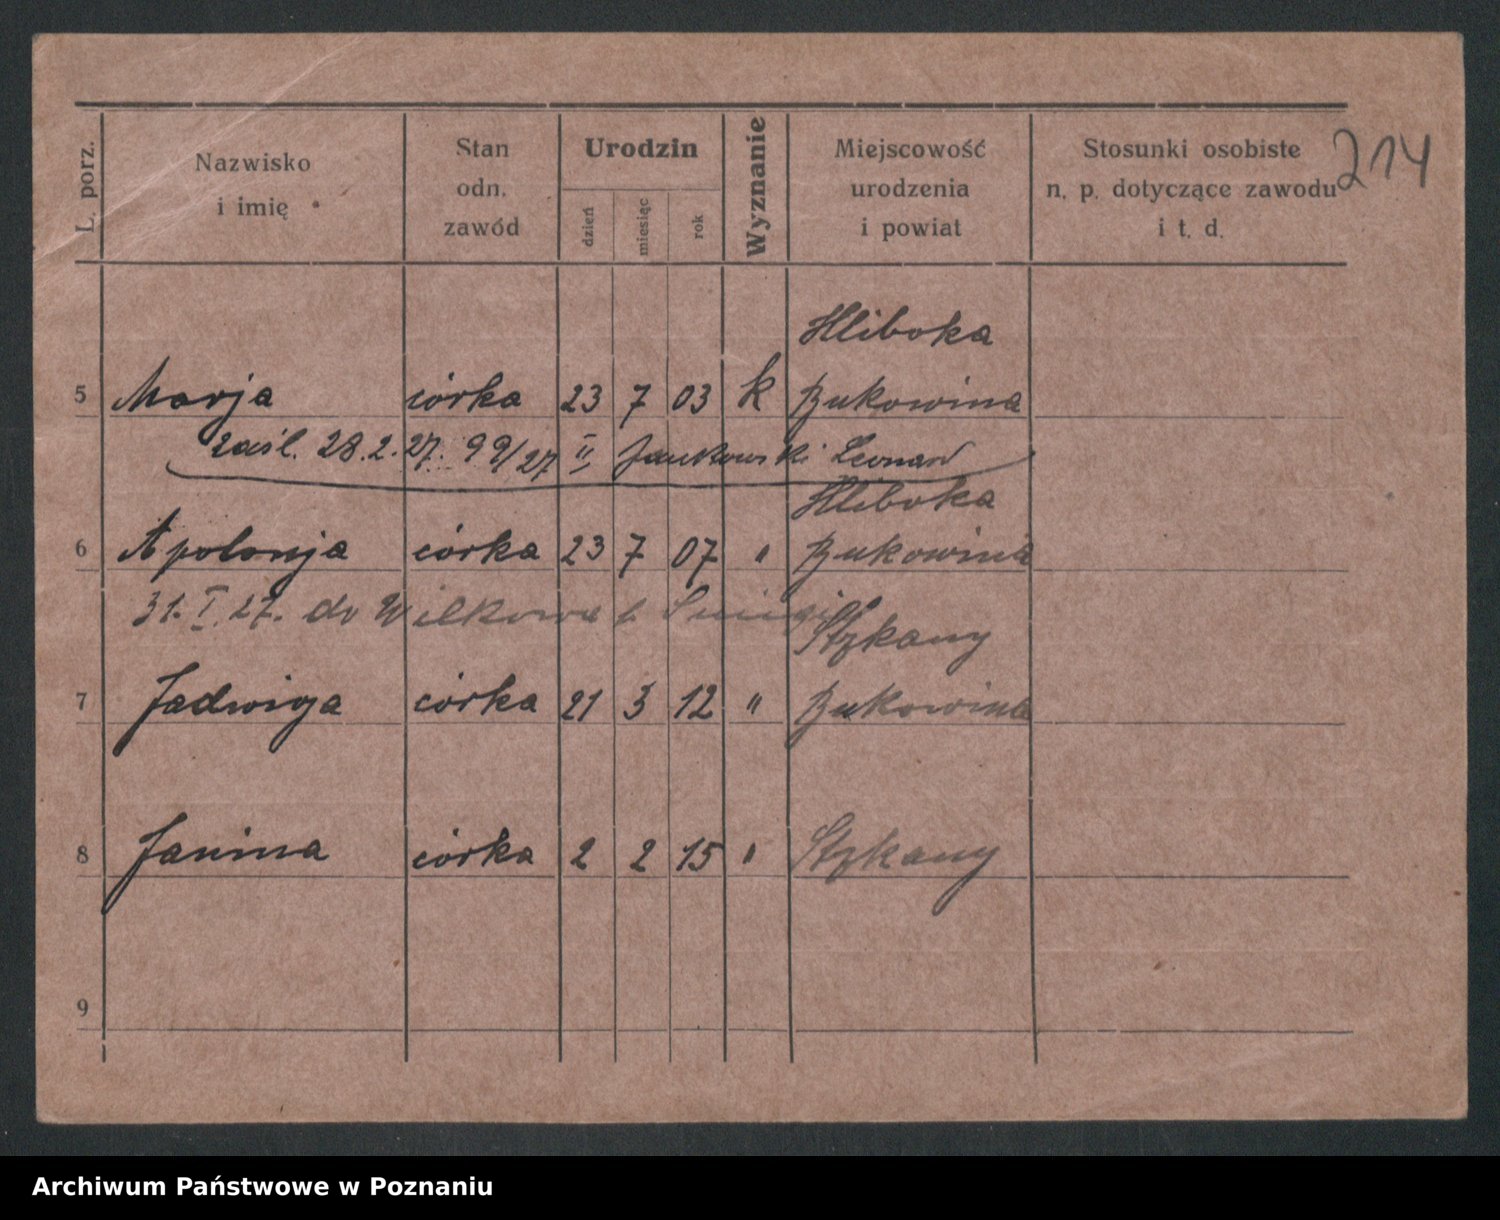 214
L. porz.
Nazwisko i imię
Stan odn. zawód
Urodzin
dzień
miesiąc
rok
Wyznanie
Miejscowość urodzenia i powiat
Stosunki osobiste n. p. dotyczące zawodu i t. d.
Hliboka
5 Marja córka 23 7 03 k Bukowina
zaśl. 28.2.27. 99/27 II Jankowski Leonard
Hliboka
6 Apolonja córka 23 7 07 " Bukowina
31. I. 27. do Wilkowa
Stzkany
7 Jadwiga córka 21 3 12 " Bukowina
8 Janina córka 2 2 15 " Stzkany
9
Archiwum Państwowe w Poznaniu